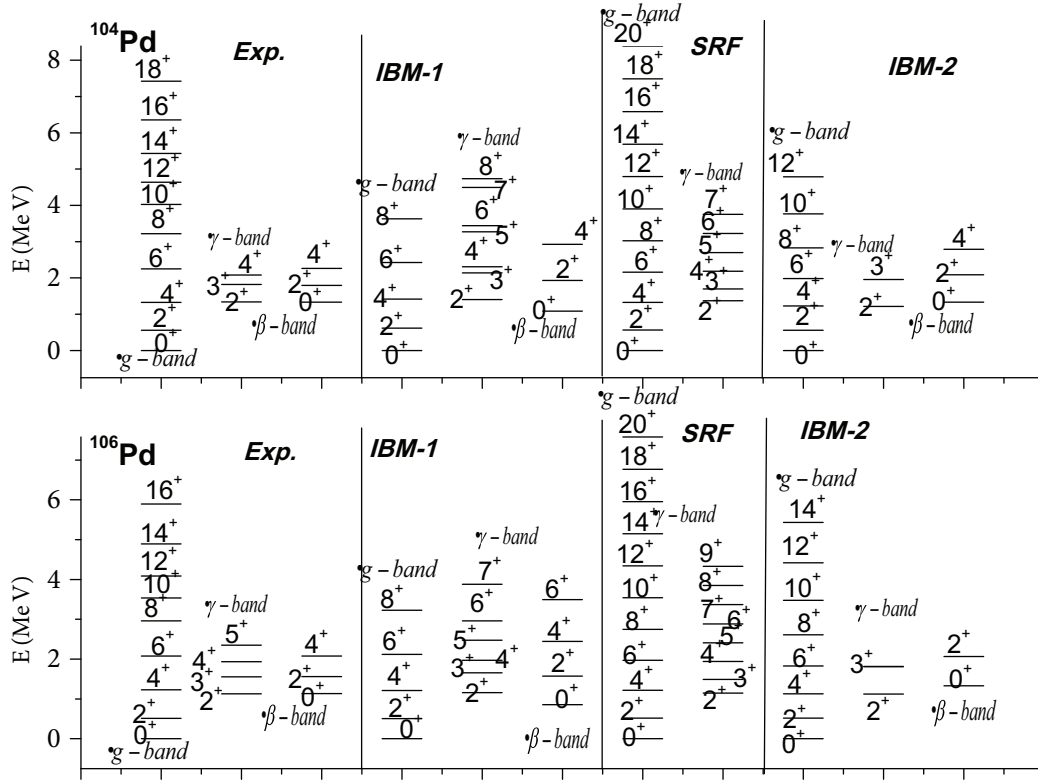 •g – band
¹⁰⁴Pd
Exp.
IBM-1
SRF
IBM-2
E (MeV)
8
6
4
2
0
18⁺
16⁺
14⁺
12⁺
10⁺
8⁺
6⁺
4⁺
2⁺
0⁺
•g – band
•γ – band
4⁺
3⁺
2⁺
4⁺
2⁺
0⁺
•β – band
•g – band
8⁺
6⁺
4⁺
2⁺
0⁺
•γ – band
8⁺
7⁺
6⁺
5⁺
4⁺
3⁺
2⁺
4⁺
2⁺
0⁺
•β – band
20⁺
18⁺
16⁺
14⁺
12⁺
10⁺
8⁺
6⁺
4⁺
2⁺
0⁺
•γ – band
7⁺
6⁺
5⁺
4⁺
3⁺
2⁺
•g – band
12⁺
10⁺
8⁺
6⁺
4⁺
2⁺
0⁺
•γ – band
3⁺
2⁺
4⁺
2⁺
0⁺
•β – band
•g – band
¹⁰⁶Pd
Exp.
IBM-1
SRF
IBM-2
E (MeV)
6
4
2
0
16⁺
14⁺
12⁺
10⁺
8⁺
6⁺
4⁺
2⁺
0⁺
•g – band
•γ – band
5⁺
4⁺
3⁺
2⁺
4⁺
2⁺
0⁺
•β – band
•g – band
8⁺
6⁺
4⁺
2⁺
0⁺
•γ – band
7⁺
6⁺
5⁺
4⁺
3⁺
2⁺
6⁺
4⁺
2⁺
0⁺
•β – band
20⁺
18⁺
16⁺
14⁺
12⁺
10⁺
8⁺
6⁺
4⁺
2⁺
0⁺
•γ – band
9⁺
8⁺
7⁺
6⁺
5⁺
4⁺
3⁺
2⁺
•g – band
14⁺
12⁺
10⁺
8⁺
6⁺
4⁺
2⁺
0⁺
•γ – band
3⁺
2⁺
2⁺
0⁺
•β – band